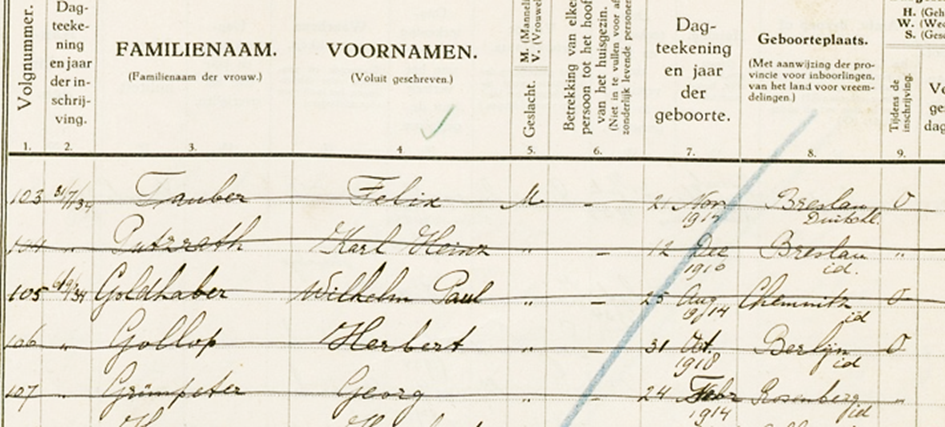 Volgnummer.
Dag-
teeke-
ning
en jaar
der in-
schrij-
ving.
FAMILIENAAM.
(Familienaam der vrouw.)
VOORNAMEN.
(Voluit geschreven.)
Geslacht.
M. (Mannel
V. (Vrouwel
Betrekking van elke
persoon tot het hoof
van het huisgezin.
(Niet in te vullen voor af
zonderlijk levende personen
Dag-
teekening
en jaar
der
geboorte.
Geboorteplaats.
(Met aanwijzing der pro-
vincie voor inboorlingen,
van het land voor vreem-
delingen.)
H. (Geh
W. (Wed
S. (Gesc
Tijdens de
inschrijving.
1. 2. 3. 4 5. 6. 7. 8. 9.
103 31/7/34 Tauber Felix M – 21 Nov 1917 Breslau Duitschl. O
104 " Putzrath Karl Heinz " – 12 Dec 1916 Breslau id. "
105 Goldhaber Wilhelm Paul " – 25 Aug 1914 Chemnitz id O
106 " Gollop Herbert " – 31 Oct. 1918 Berlijn id O
107 Grümpeter Georg " – 24 Febr 1914 Rosenberg id "